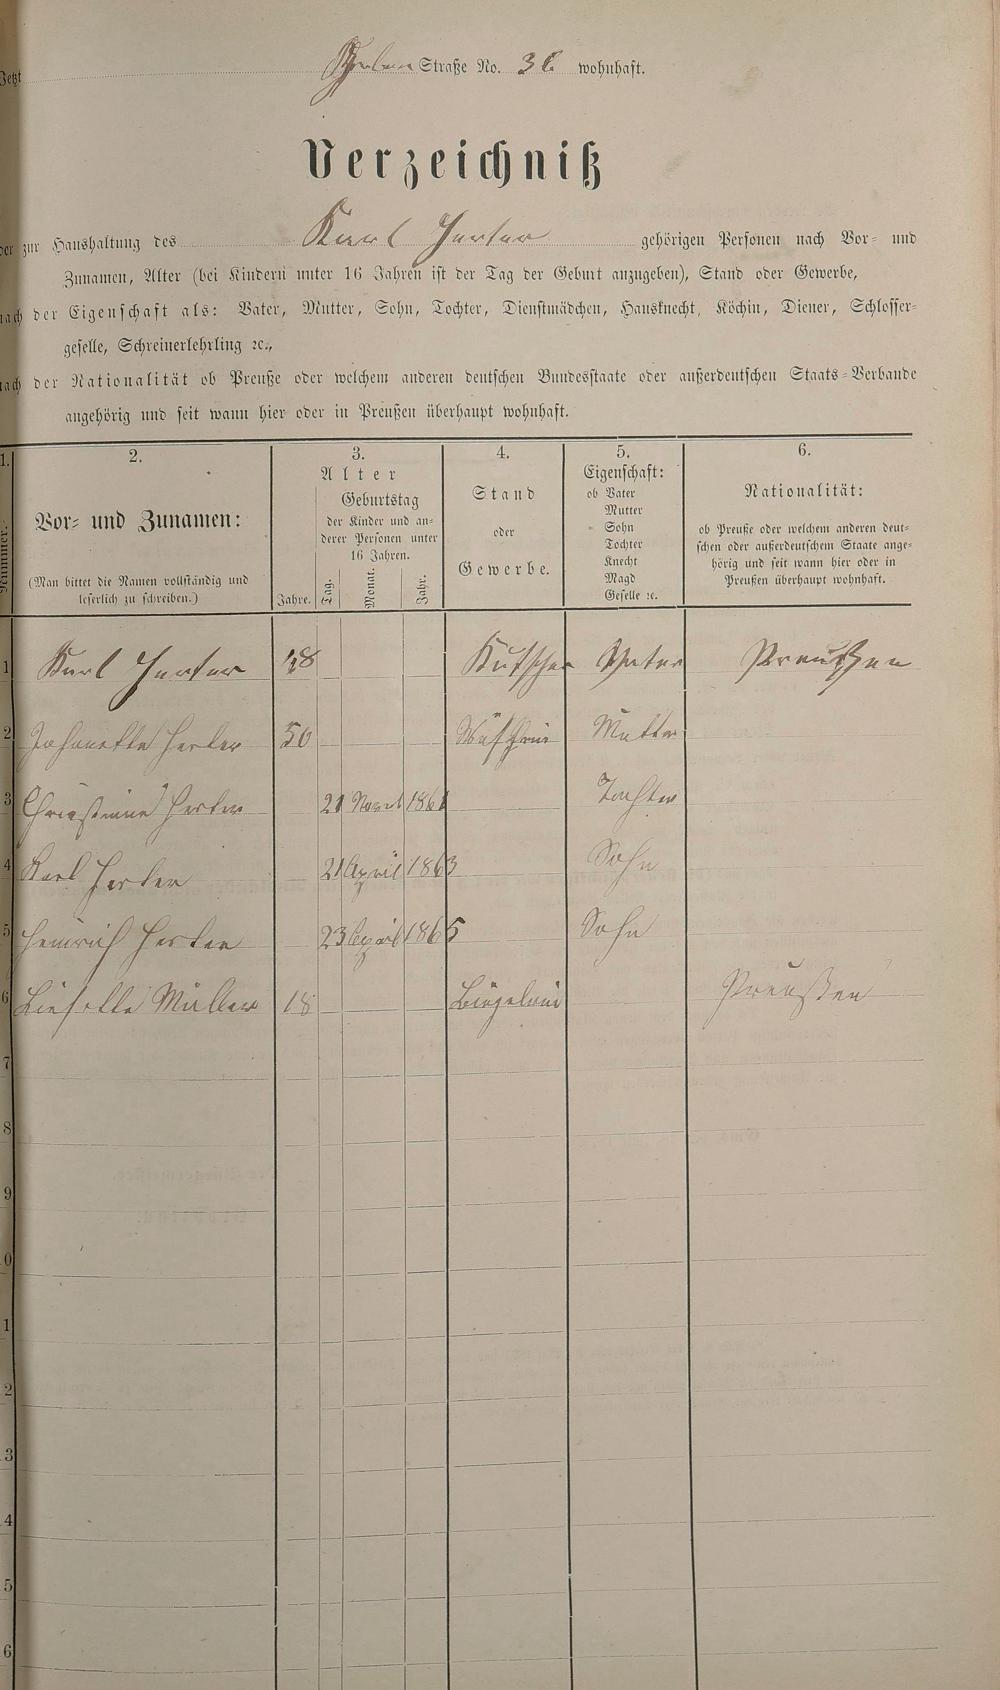 Jetzt Straße No. 36 wohnhaft.
Verzeichniß
der zur Haushaltung des Karl Herter gehörigen Personen nach Vor- und
Zunamen, Alter (bei Kindern unter 16 Jahren ist der Tag der Geburt anzugeben), Stand oder Gewerbe,
nach der Eigenschaft als: Vater, Mutter, Sohn, Tochter, Dienstmädchen, Hausknecht, Köchin, Diener, Schlosser-
geselle, Schreinerlehrling ꝛc.,
nach der Nationalität ob Preuße oder welchem anderen deutschen Bundesstaate oder außerdeutschen Staats-Verbande
angehörig und seit wann hier oder in Preußen überhaupt wohnhaft.
1. 2. 3. 4. 5. 6.
Nummer.
Vor- und Zunamen:
(Man bittet die Namen vollständig und
leserlich zu schreiben.)
Alter
Jahre.
Geburtstag
der Kinder und an-
derer Personen unter
16 Jahren.
Tag. Monat. Jahr.
Stand
oder
Gewerbe.
Eigenschaft:
ob Vater
Mutter
Sohn
Tochter
Knecht
Magd
Geselle ꝛc.
Nationalität:
ob Preuße oder welchem anderen deut-
schen oder außerdeutschem Staate ange-
hörig und seit wann hier oder in
Preußen überhaupt wohnhaft.
1 Karl Herter 48 Kutscher Vater Preußen
2 Johanette Herter 50 Mutter
3 Christiane Herter 21 1861 Tochter
4 Karl Herter 21 April 1863 Sohn
5 Heinrich Herter 23 April 1865 Sohn
6 Liesette Müller 18 Büglerin Preußen
7
8
9
0
1
2
3
4
5
6